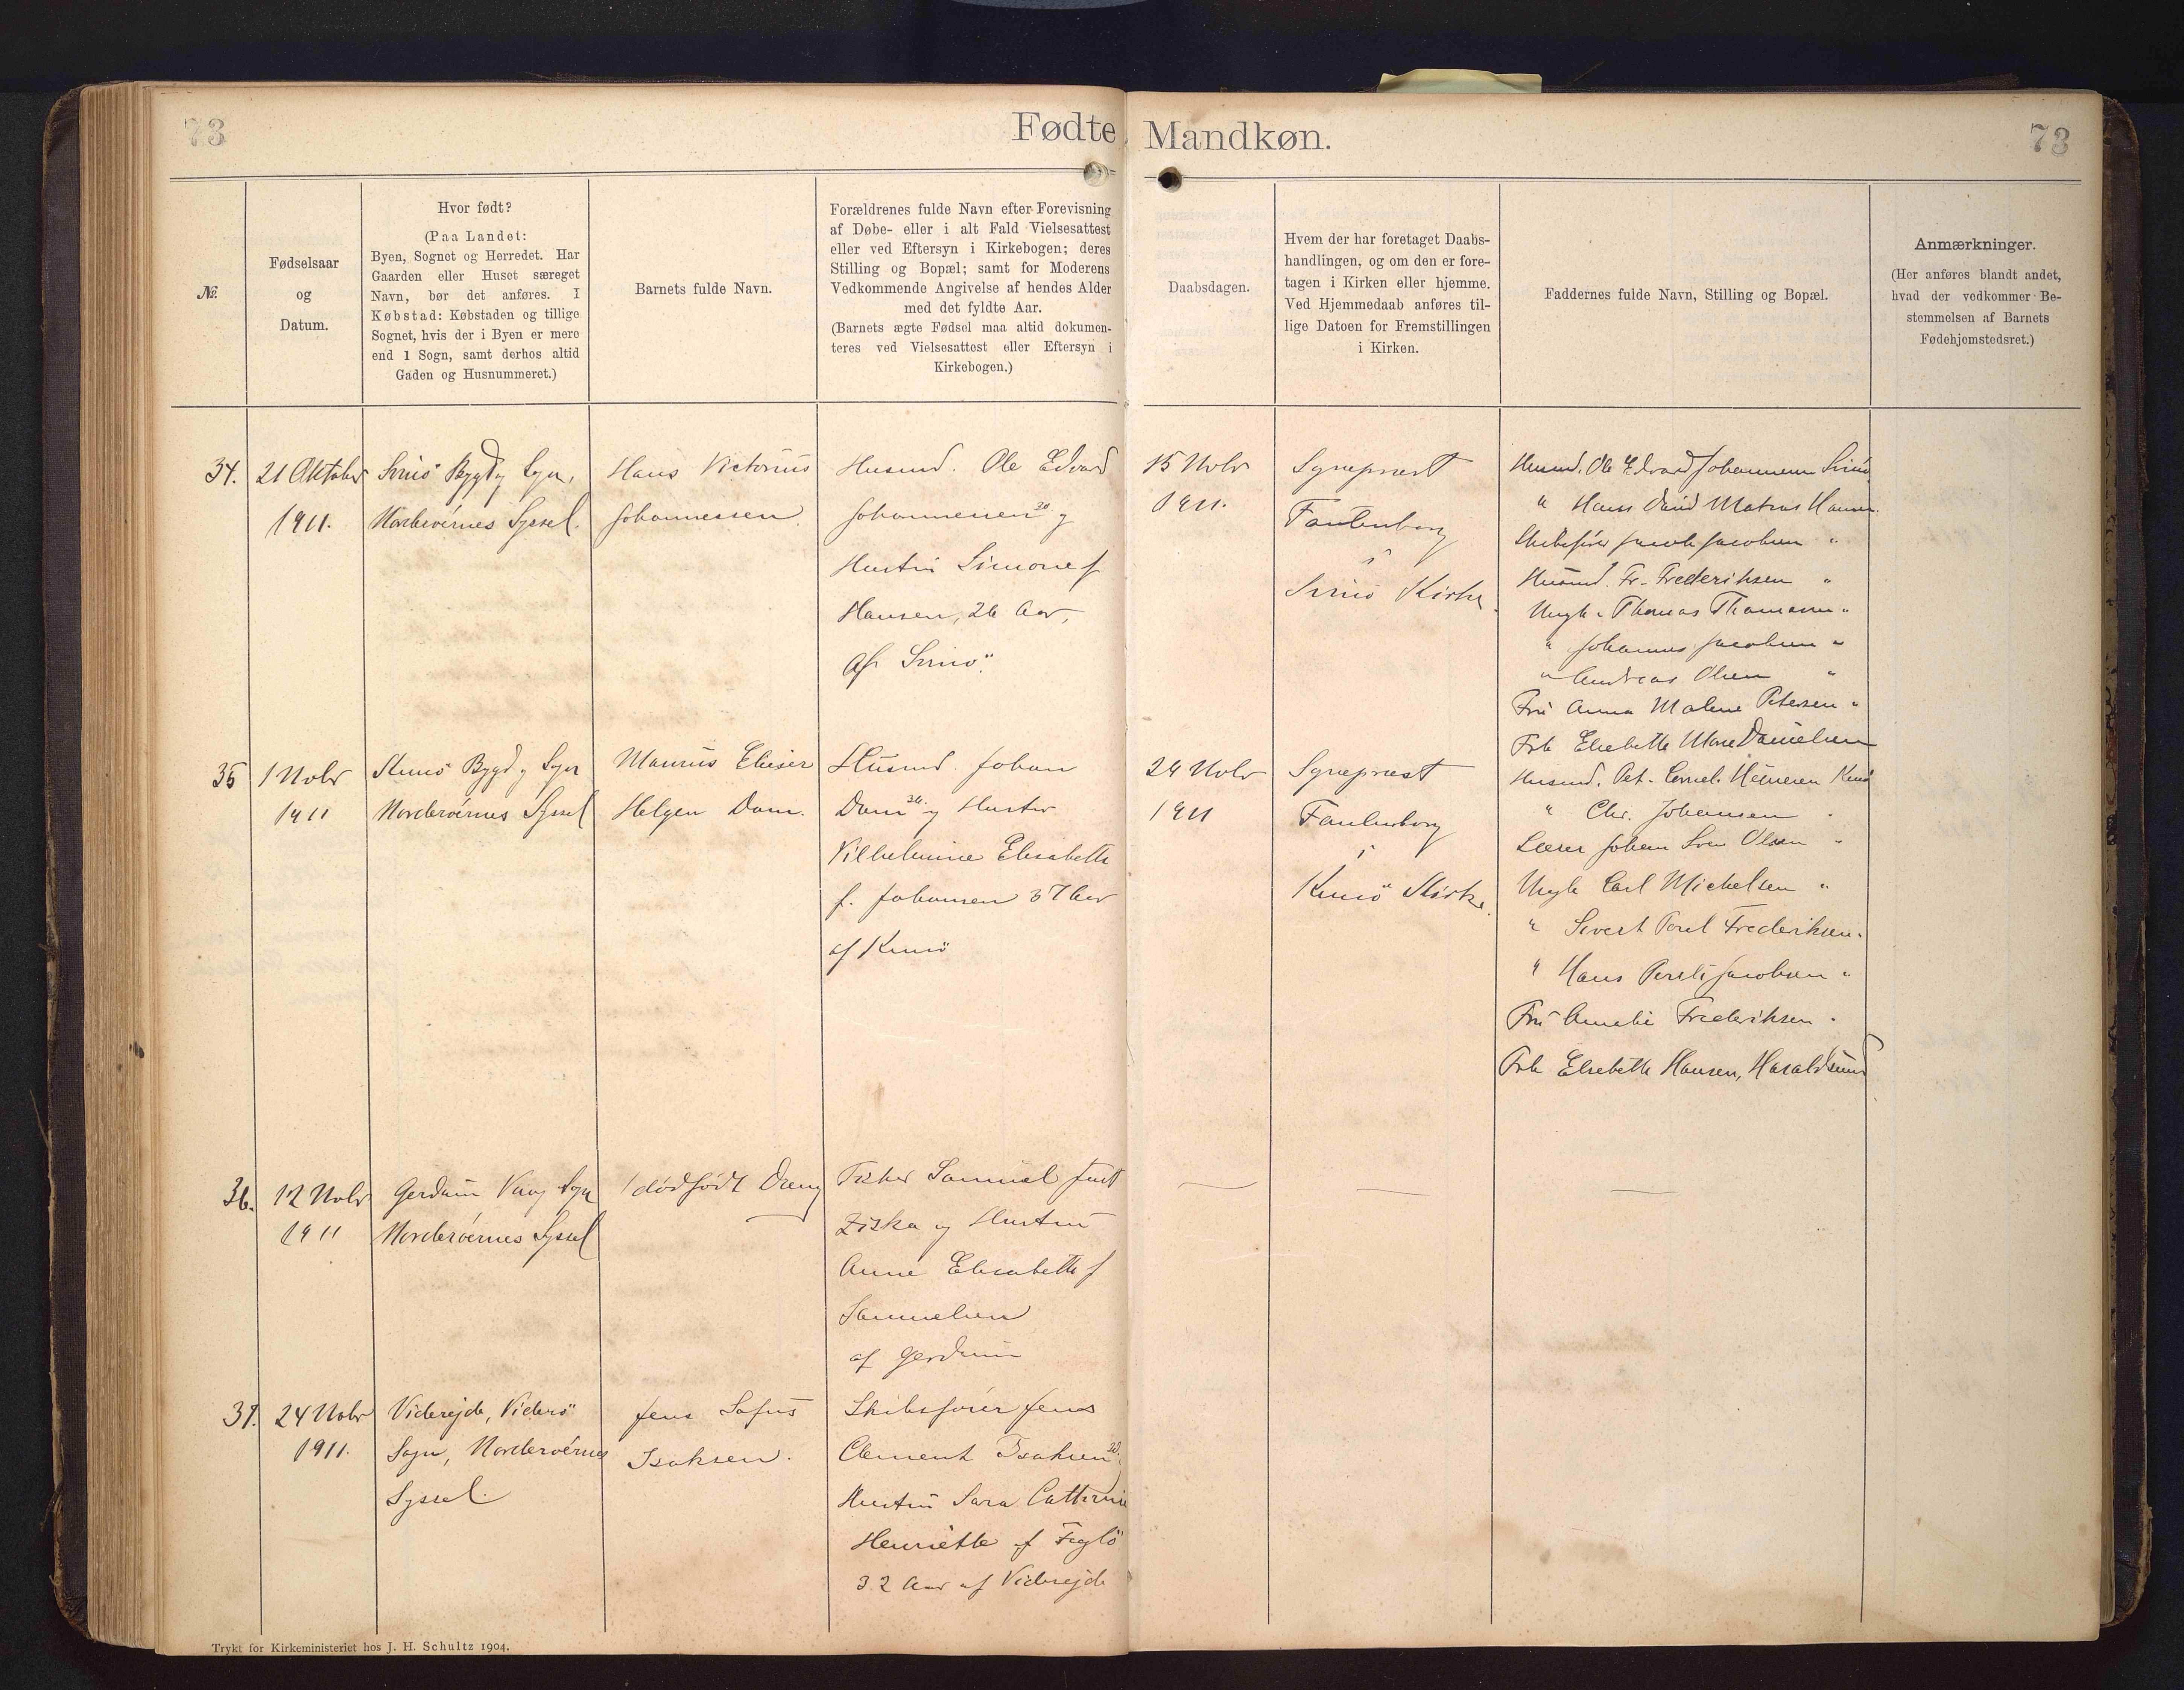 73
Fødte, Mandkøn.
73
№.
Fødselsaar
og
Datum.
Hvor født?
(Paa Landet:
Byen, Sognet og Herredet. Har
Gaarden eller Huset særeget
Navn, bør det anføres. I
Købstad: Købstaden og tillige
Sognet, hvis der i Byen er mere
end 1 Sogn, samt derhos altid
Gaden og Husnummeret.)
Barnets fulde Navn.
Forældrenes fulde Navn efter Forevisning
af Døbe- eller i alt Fald Vielsesattest
eller ved Eftersyn i Kirkebogen; deres
Stilling og Bopæl; samt for Moderens
Vedkommende Angivelse af hendes Alder
med det fyldte Aar.
(Barnets ægte Fødsel maa altid dokumen-
teres ved Vielsesattest eller Eftersyn i
Kirkebogen.)
Daabsdagen.
Hvem der har foretaget Daabs-
handlingen, og om den er fore-
tagen i Kirken eller hjemme.
Ved Hjemmedaab anføres til-
lige Datoen for Fremstillingen
i Kirken.
Faddernes fulde Navn, Stilling og Bopæl.
Anmærkninger.
(Her anføres blandt andet,
hvad der vedkommer Be-
stemmelsen af Barnets
Fødehjemstedsret.)
34.
21 Oktober
1911.
Svinö Bygd og Sogn,
Norderöernes Syssel.
Hans Victorius
Johannessen.
Husmd. Ole Edvard
Johannesen 30 og
Hustru Simone f
Hansen, 26 Aar,
af Svinö.
15 Novbr
1911.
Sognepræst
i
Svinö Kirke.
Husmd. Ole Edvard Johannesen Svinö
" Hans David Matras Hansen "
Skibsfører Jacob Jacobsen "
Husmd. Fr. Frederiksen "
Ungk. Thomas Thomasen "
" Johannes Jacobsen "
" Andreas Olsen "
Fru Anna Malene Petersen "
Frk Elsebeth Marie Danielsen
35
1 Novbr
1911
Kunö Bygd og Sogn
Norderöernes Syssel
Maurus Elieser
Helgen Dam.
Husmd. Johan
Dam 36. og Hustru
Vilhelmine Elisabeth
f. Johansen 37 Aar
af Kunö
24 Novbr
1911
Sognepræst
i
Kunö Kirke.
Husmd. Pet. Cornel. Heinesen Kunö
" Chr. Johansen "
Lærer Johan Sven Olsen "
Ungk Carl Michelsen "
" Sivert Poul Frederiksen "
" Hans Jacobsen "
Fru Amalie Frederiksen "
Frk Elsebeth Hansen, Haraldsund
36.
12 Novbr
1911
Gerdum Vaag Sogn
Norderöernes Syssel
1 dødfødt Dreng
Fisker Samuel Just
Ziska og Hustru
Anne Elisabeth f
Samuelsen
af Gerdum
37.
24 Novbr
1911.
Viderejde, Viderö
Sogn, Norderöernes
Syssel.
Jens Sofus
Isaksen.
Skibsfører Jens
Clement Isaksen
Hustru Sara Cathrine
Henriette f Fuglö
32 Aar af Viderejde
Trykt for Kirkeministeriet hos J. H. Schultz 1904.